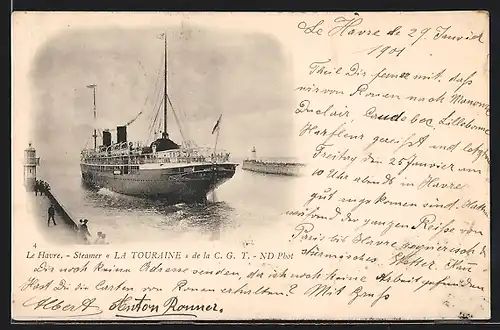 Le Havre de 29 Janvier
1901
Theil Dir ferner mit, daß
wir von Rouen nach
Duclair, Caudebec, Lillebonne
Harfleur gereist und letzten
Freitag den 25 Janvier um
10 Uhr abends in Havre
gut angekommen sind. Hatten
während der ganzen Reise von
Paris bis Havre regnerisch &
stürmisches Wetter. Kann
4
Le Havre. - Steamer « LA TOURAINE » de la C. G. T. - ND Phot
Dir noch keine Adresse senden, da ich noch keine Arbeit gefunden
Hast Du die Carten von Rouen erhalten? Mit Gruss
Albert, Anton Ronner.